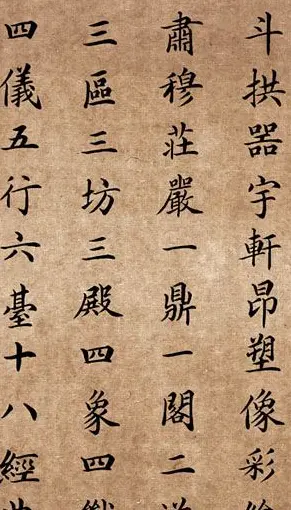 斗拱器宇軒昂塑像彩
肅穆莊嚴一鼎一閣二
三區三坊三殿四象四
四儀五行六臺十八經